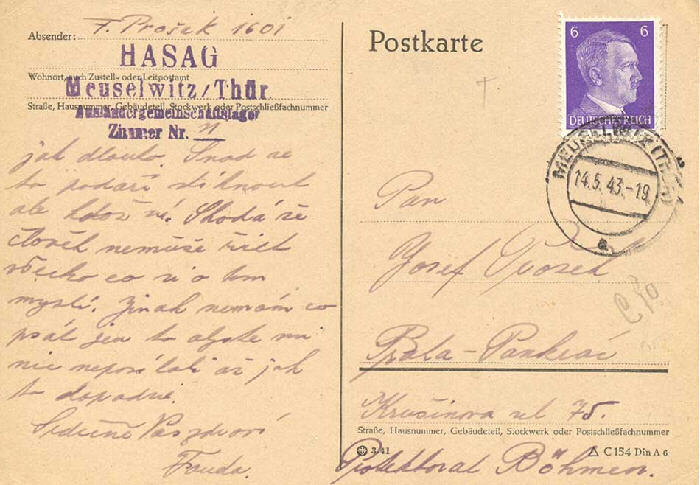 Absender: F. Prošek 1601
HASAG
Wohnort, auch Zustell- oder Leitpostamt
Meuselwitz/Thür.
Straße, Hausnummer, Gebäudeteil, Stockwerk oder Postschließfachnummer
Ausländergemeinschaftslager
Zimmer Nr.
jak dlouho. Snad se
to podaří stihnout
ale kdož ví. Škoda že
člověk nemůže říct
všecko co si o tom
myslí. Jinak nemám co
psát jen to abyste mi
nic neposílali až jak
to dopadne.
Srdečně Vás zdraví
Fanda.
Postkarte
6 6
DEUTSCHES REICH
MEUSELWITZ (THÜR)
14.5.43.-19
a
Pan
Josef
Praha-Pankrác
ul 75.
Straße, Hausnummer, Gebäudeteil, Stockwerk oder Postschließfachnummer
Protektorat Böhmen.
3.41
C 154 Din A 6